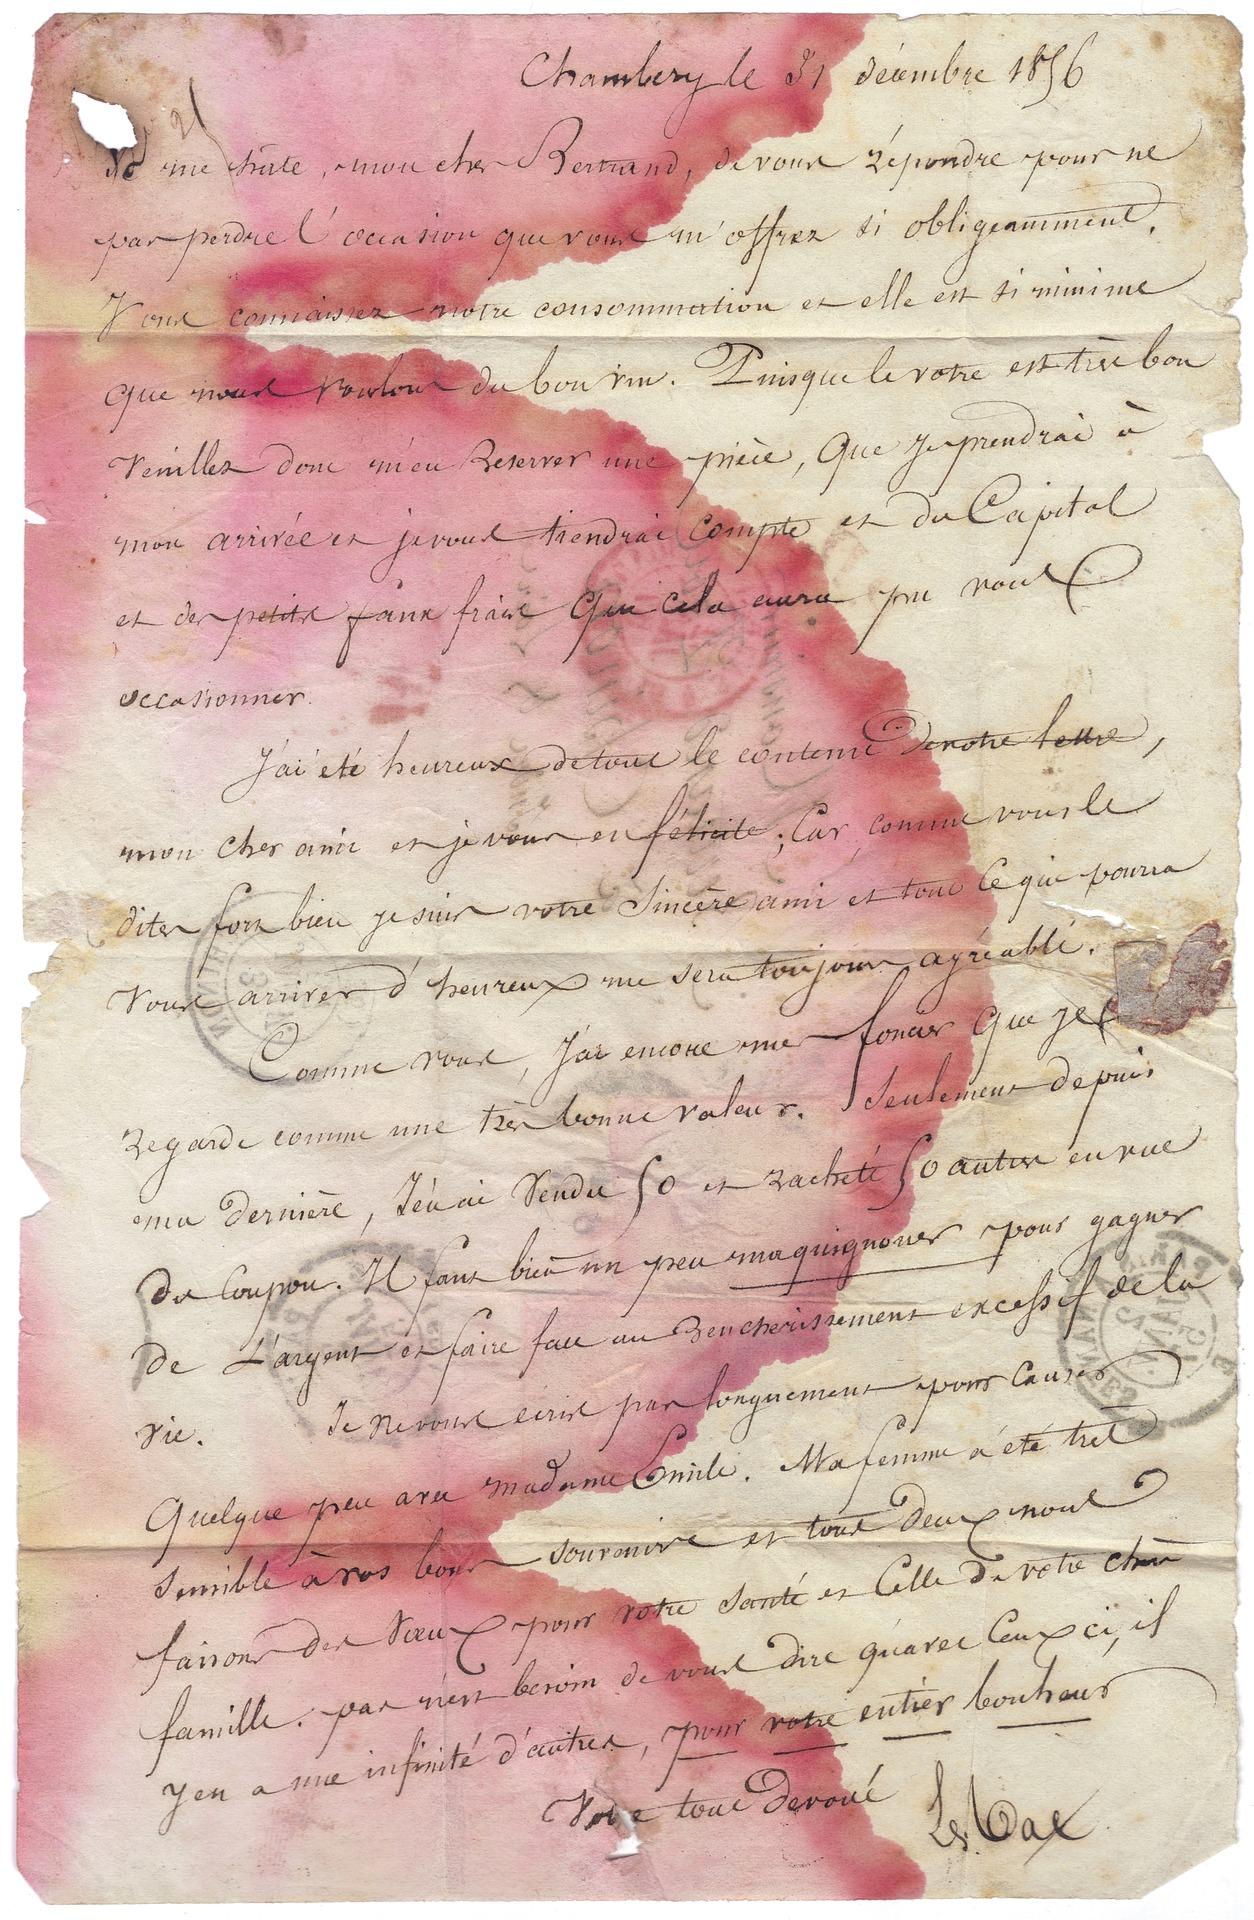 Chambery le 31 décembre 1856
Je me hâte, mon cher Bertrand, de vous répondre pour ne
pas perdre l'occasion que vous m'offrez si obligeamment.
Vous connaissez notre consommation et elle est si minime
que nous voulons du bon vin. Puisque le votre est très bon
Veuillez donc m'en Reserver une pièce, Que je prendrai à
mon arrivée et je vous tiendrai compte et du Capital
et des petits faux frais Que cela aura pu vous
occasionner.
J'ai été heureux de tout le contenu de votre lettre,
mon cher ami et je vous en félicite ; Car, comme vous le
dites fort bien je suis votre Sincère ami et tout Ce qui pourra
Vous arriver d'heureux me sera toujours agréable.
Comme vous, j'ai encore mes fonciers Que je
Regarde comme une très bonne valeur. Seulement depuis
ma dernière, J'en ai Vendu 50 et racheté 50 autres en vue
du Coupon. Il faut bien un peu maquignoner pour gagner
de L'argent et faire face au Rencherissement excessif de la
vie. Je ne vous écris pas longuement pour Causer
Quelque peu avec madame Emile. Ma femme a été très
sensible à vos bons souvenirs et tous Deux nous
faisons des Vœux pour votre Santé et Celle De votre chère
famille. pas n'est besoin de vous dire qu'avec Ceux ci, il
y en a une infinité d'autres, pour votre entier bonheur
Votre tout Devoué